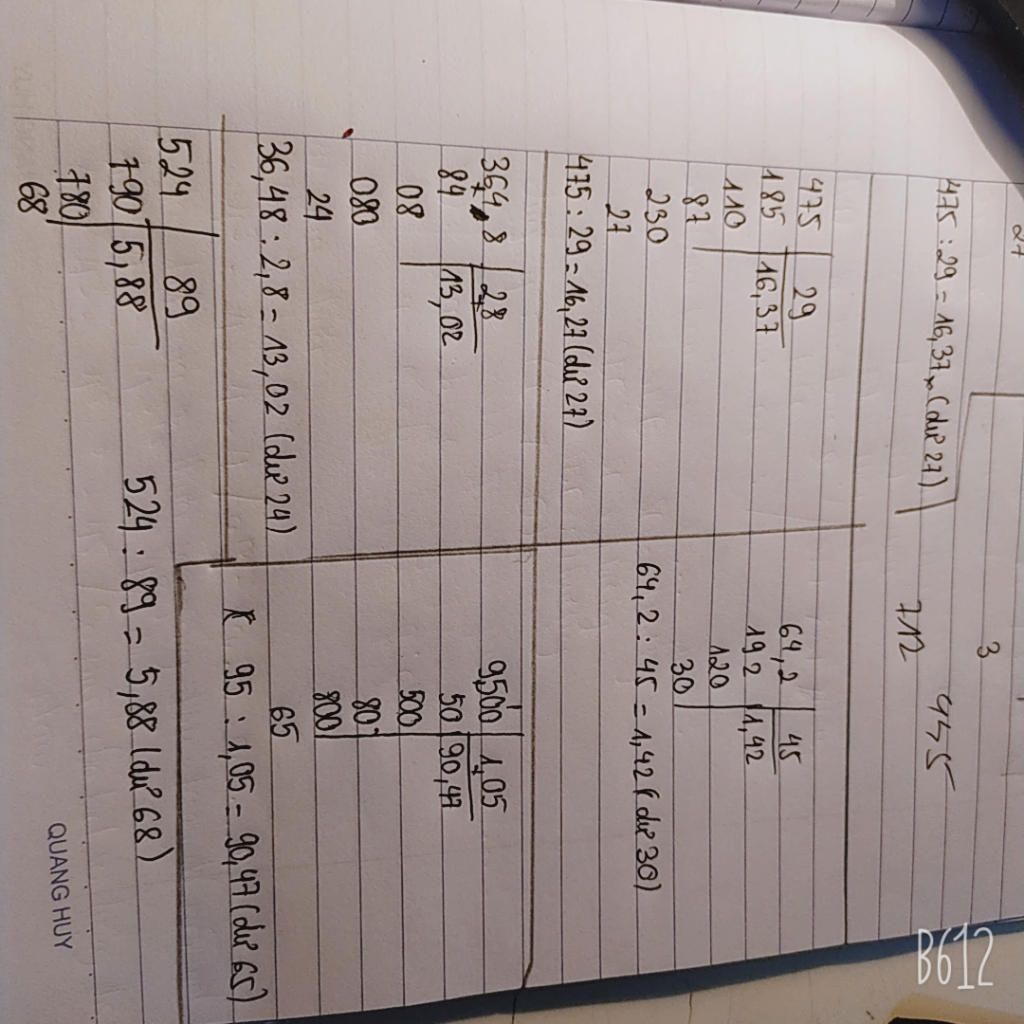 27
3
475 : 29 = 16,37 (dư 27)
945
712
475 29
185 16,37
110
87
230
27
475 : 29 = 16,27 (dư 27)
64,2 45
192 1,42
120
30
64,2 : 45 = 1,42 (dư 30)
364,8 28
84 13,02
08
080
24
36,48 : 2,8 = 13,02 (dư 24)
9500 1,05
50 90,47
500
80
800
65
95 : 1,05 = 90,47 (dư 65)
524 89
790 5,88
780
68
524 : 89 = 5,88 (dư 68)
QUANG HUY
B612